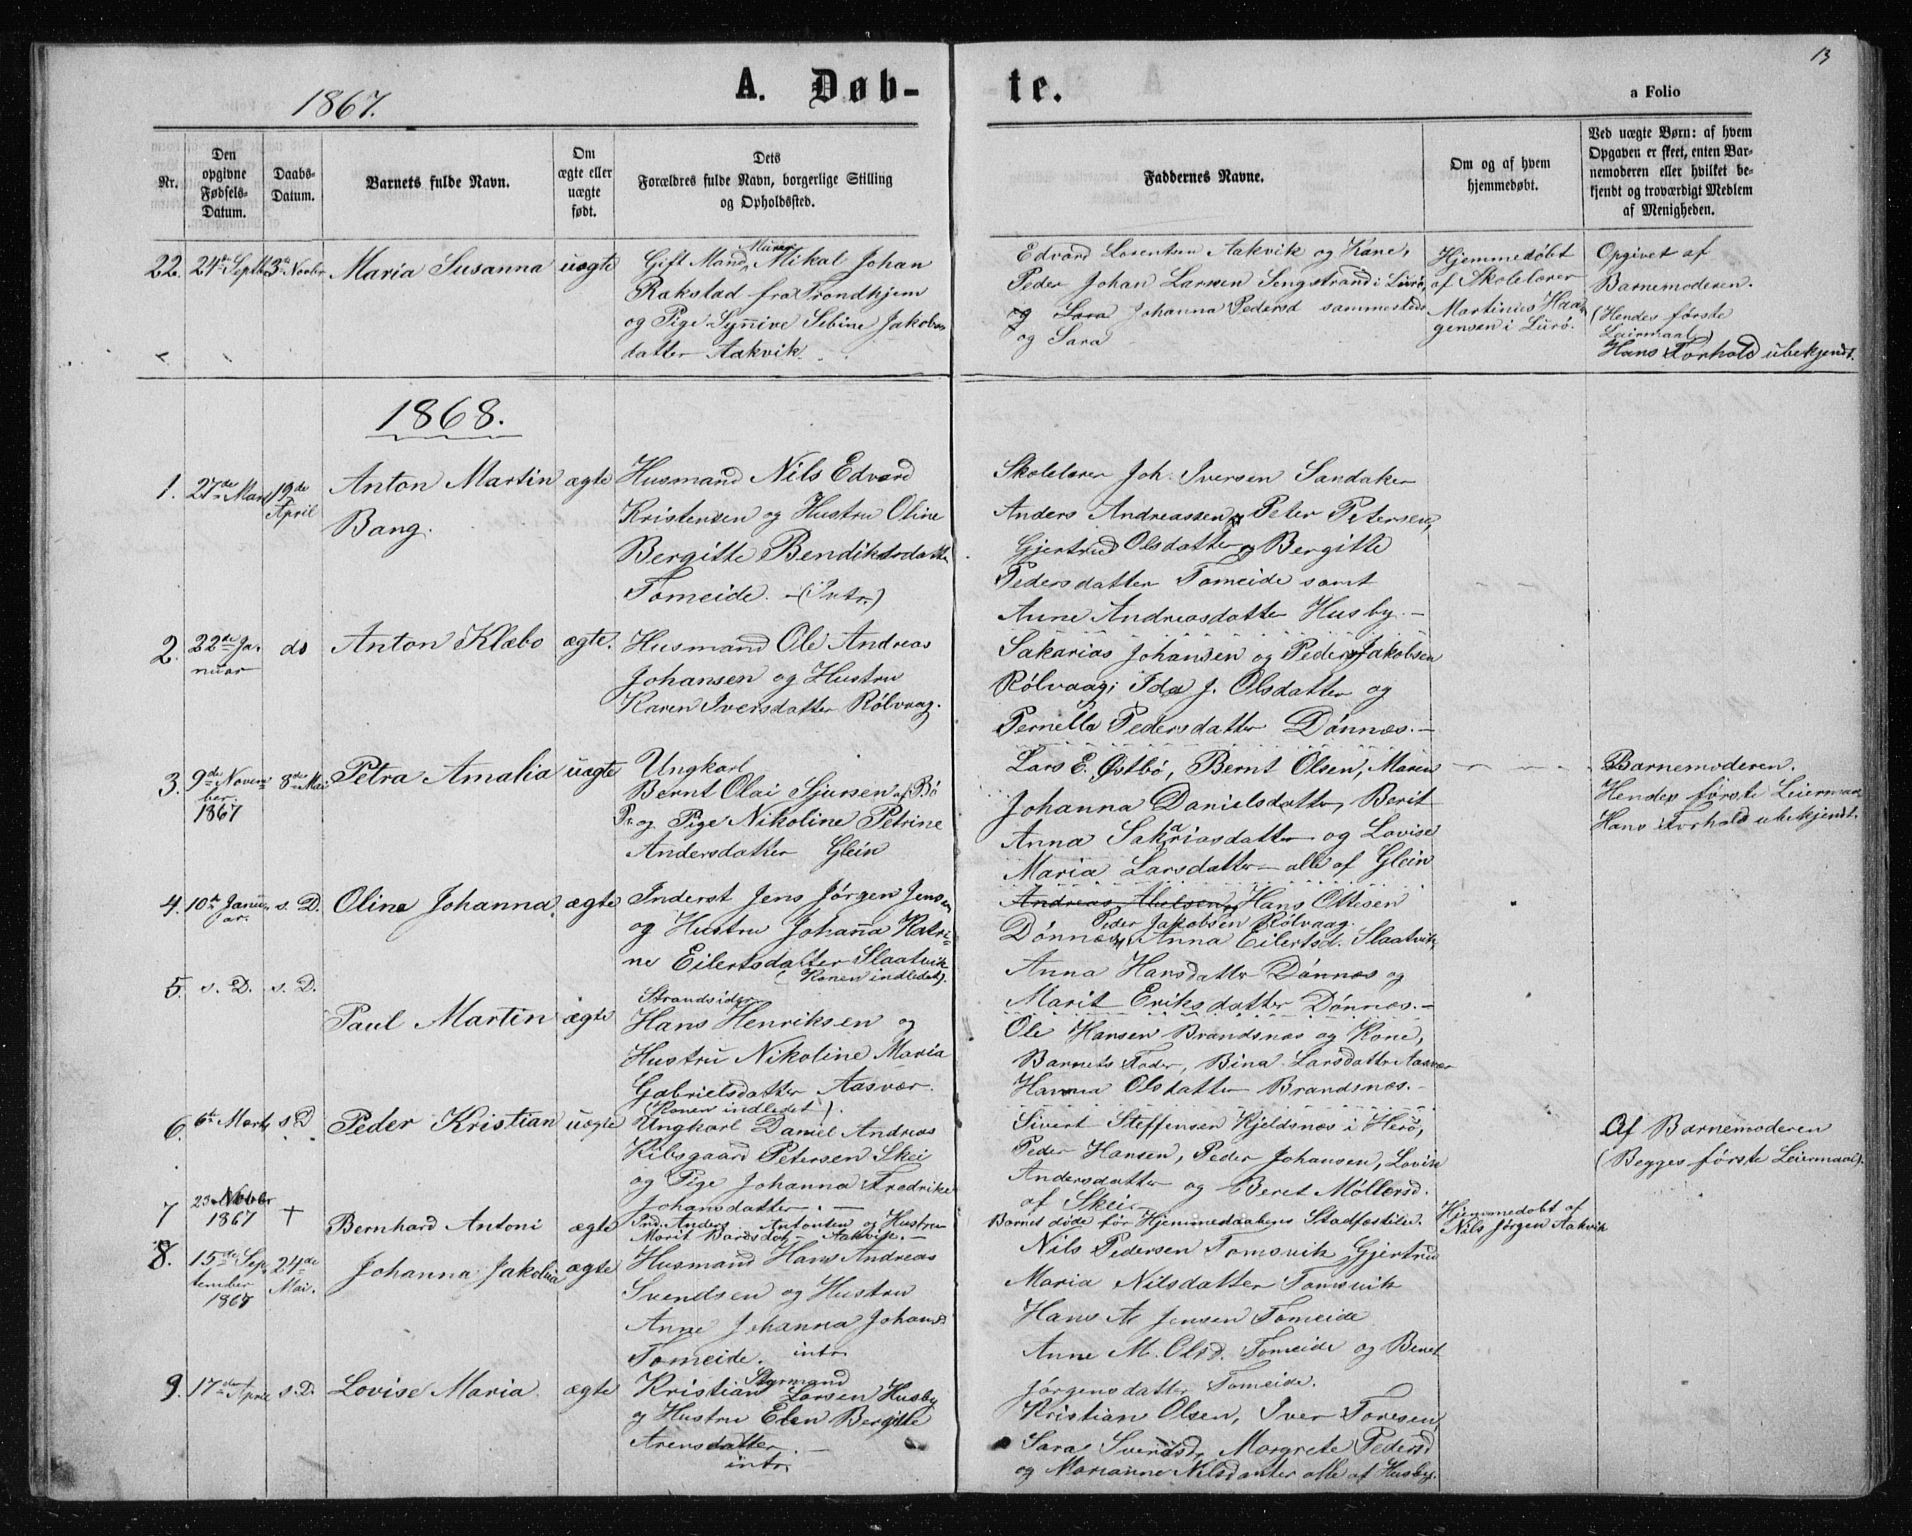 13
1867.
A. Døb-
te.
a Folio
Nr.
Den opgivne Fødsels-Datum.
Daabs-Datum.
Barnets fulde Navn.
Om ægte eller uægte født.
Dets
Forældres fulde Navn, borgerlige Stilling
og Opholdssted.
Faddernes Navne.
Om og af hvem
hjemmedøbt.
Ved uægte Børn: af hvem
Opgaven er skeet, enten Bar-
nemoderen eller hvilket be-
kjendt og troværdigt Medlem
af Menigheden.
22. 24de Septbr 3de Novbr Maria Susanna uægte
Gift Mand, Murer Mikal Johan
Rakstad fra Trondhjem
og Pige Synnive Sebine Jakobs
datter Aakvik.
Edvard Lorentsen Aakvik og Kone,
Peder Johan Larsen Sengstrand i Lurø,
og Sara Johanna Pedersd sammesteds
og Sara
Hjemmedøbt
af Skolelærer
Martinus Haa
gensen i Lurø.
Opgivet af
Barnemoderen.
(Hendes første
Leirmaal)
Hans Forhold ubekjendt.
1868.
1. 27de Marts 19de April
Anton Martin
Bang.
ægte
Husmand Nils Edvard
Kristensen og Hustru Oline
Bergitte Bendiktsdatter
Tomeide. - (Intr.)
Skolelærer Joh. Iversen Sandaker
Anders Andreassen, Peter Petersen,
Gjertrud Olsdatter og Bergitte
Pedersdatter Tomeide samt
Anne Andreasdatter Husby. -
2. 22de Ja-
nuar
ds
Anton Klæbo ægte.
Husmand Ole Andreas
Johansen og Hustru
Karen Iversdatter Rølvaag.
Sakarias Johansen og Peder Jakobsen
Rølvaag; Ida J. Olsdatter og
Pernella Pedersdatter Dønnæs. -
3. 9de Novem
ber
1867
8de Mai
Petra Amalia uægte
Ungkarl
Bernt Olai Sjursen af Bø
Pr. og Pige Nikoline Petrine
Andersdatter Glein
Lars E. Østbø, Bernt Olsen, Maren
Johanna Danielsdatter, Berit
Anna Sakariasdatter og Lovise
Maria Larsdatter - alle af Glein
Barnemoderen.
Hendes første Leiermaal
Hans Forhold ubekjendt.
4. 10de Janu
ar.
s. D.
Oline Johanna. ægte
Inderst Jens Jørgen Jensen
og Hustru Johanna Katri-
ne Eilertsdatter Slaatvik
(Konen indledet).
Andreas Hans Ottesen
Peder Jakobsen Rølvaag.
Dønnæs, Anna Eilertsd. Slaatvik,
Anna Hansdatter Dønnæs og
Marit Eriksdatter Dønnæs. -
5. s. D. s. D.
Paul Martin ægte
Strandsider
Hans Henriksen og
Hustru Nikoline Maria
Gabrielsdatter Aasvær.
(Konen indledet).
Ole Hansen Brandsnæs og Kone,
Barnets Fader, Bina Larsdatter Aasvær
Hanna Olsdatter Brandsnæs. -
6. 6te Marts s. D
Peder Kristian uægte
Ungkarl Daniel Andreas
Kibsgaard Petersen Skei
og Pige Johanna Fredrike
Johansdatter. -
Sivert Steffensen Kjeldsnæs i Herø,
Peder Hansen, Peder Johansen, Lovik
Andersdatter og Beret Møllersd.
af Skei.
Af Barnemoderen
(Begges første Leiermaal).
7 23 Novbr
1867
+
Bernhard Antoni ægte
Ind. Anders Antonsen og Hustru
Marit Baardsdat- Aakvik. -
Barnet døde før Hjemmedaabens Stadfæstelse.
Hjemmedøbt af
Nils Jørgen Aakvik
8. 15de Sep
tember
1867
24de
Mai.
Johanna Jakobia ægte
Husmand Hans Andreas
Svendsen og Hustru
Anne Johanna Johansd
Tomeide. intr.
Nils Pedersen Tomsvik Gjertrud
Maria Nilsdatter Tomsvik
Hans A Jensen Tomeide
Anne M. Olsd. Tomeide og Beret
Jørgensdatter Tomeide.
9. 17de April s. D.
Lovise Maria. ægte
Styrmand
Kristian Larsen Husby
og Hustru Elen Bergitte
Arensdatter. -
intr.
Kristian Olsen, Iver Toresen
Sara Svendsd, Margrete Pedersd
og Marianne Nilsdatter alle af Husby.